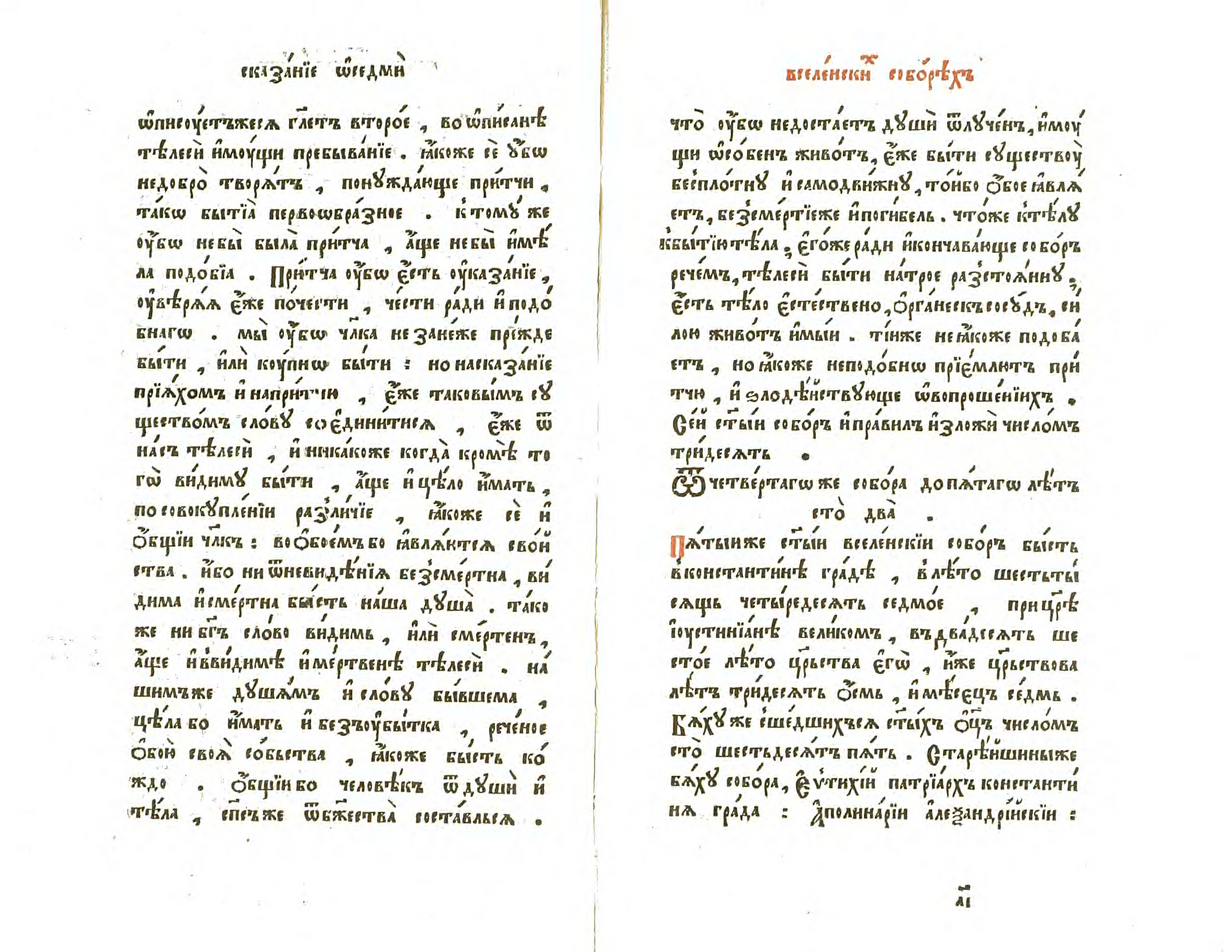 сказа́нїе ѡ҆седмѝ
ѡ҆писꙋ́етъжесѧ гл҃етъ второ́е , во ѡ҆писа́нѣ
тѣлесѝ и҆мꙋ́щи пребыва́нїе . ꙗ҆́коже сѐ ᲂу҆́бѡ
недобрѐ творѧ́тъ , понꙋжда́юще при́тчи ,
та́кѡ бытїѧ̀ первоѡбра́зное . ктомꙋ́ же
ᲂу҆́бѡ небы̀ была̀ при́тча , а҆́ще небы̀ и҆мѣ́
ла подо́бїа . При́тча ᲂу҆́бѡ є҆́сть ᲂу҆каза́нїе ,
ᲂу҆вѣрѧ́ѧ є҆́же по́чести , че́сти ра́ди и҆ подо́
бнагѡ . мы̀ ᲂу҆́бѡ чл҃ка не зане́же пре́жде
бы́ти , и҆лѝ кꙋ́пнѡ бы́ти : но насказа́нїе
прїѧ́хомъ и҆ напри́тчю , є҆́же таковы́мъ сꙋ
щество́мъ сло́вꙋ соедини́тисѧ , є҆́же ѿ
на́съ тѣлесѝ , и҆ ника́коже когда̀ кромѣ̀ то
гѡ̀ ви́димꙋ бы́ти , а҆́ще и҆ цѣ́ло и҆́мать ,
по совокꙋпле́нїи разли́чїе , ꙗ҆́коже сѐ и҆
ѻ҆́бщїи чл҃къ : во ѻ҆бое́мъ бо ꙗ҆влѧ́ютсѧ сво́й
ства . и҆́бо ни ѿневи́дѣнїѧ безсме́ртна , ви́
дима и҆ сме́ртна бы́сть на́ша дꙋша̀ . та́ко
же ни бг҃ъ сло́во ви́димь , и҆лѝ сме́ртенъ ,
а҆́ще и҆ вви́димѣ и҆ ме́ртвенѣ тѣлесѝ . на́
шимъже дꙋша́мъ и҆ сло́вꙋ бы́вшема ,
цѣ́ла бо и҆́мать и҆ безъꙋбы́тка , рече́ное
ѻ҆бою̀ своѧ̀ со́бьства , ꙗ҆́коже бы́сть ко́
ждо . ѻ҆́бщїи бо человѣ́къ ѿ дꙋшѝ и҆
тѣ́ла , сп҃съ же ѿ бж҃ества̀ соста́вльсѧ .
вселе́нскиⷯ собо́рѣхъ
что̀ ᲂу҆́бѡ недостае́тъ дꙋшѝ ѿлꙋче́нъ , и҆мꙋ́
щи ѡ҆со́бенъ живо́тъ , є҆́же бы́ти сꙋществꙋ̀
беспло́тнꙋ и҆ самодви́жнꙋ , то́йбо ѻ҆бое ꙗ҆влѧ́
етъ , безсме́ртїеже и҆ поги́бель . что́же ктѣ́лꙋ
кбытїю̀ тѣ́ла ; є҆гѡ́же ра́ди и҆ конча́вающе собо́ръ
рече́мъ , тѣлесѝ бы́ти на́трое разстоѧ́ннꙋ ;
є҆́сть тѣ́ло є҆сте́ствено , ѻ҆рга́нескъ сосꙋ́дъ , си́
лою живо́тъ и҆мы́и . ті́иже не ꙗ҆́коже подоба́
етъ , но ꙗ҆́коже неподо́бнѡ прїе́млютъ при́
тчю , и҆ ѕлодѣ́йствꙋюще ѡ҆вопроше́нїихъ .
Се́й ст҃ы́и собо́ръ и҆ пра́вилъ и҆зложѝ число́мъ
три́десѧть .
Ѿ четве́ртагѡ же собо́ра до пѧ́тагѡ лѣ́тъ
сто̀ два̀ .
Пѧ́тыиже ст҃ы́и вселе́нскїи собо́ръ бы́сть
вконстанти́нѣ гра́дѣ , влѣ́то шестьты́
сѧщь четы́редесѧть седмо́е , прицр҃ѣ
і҆ꙋстинїа́нѣ вели́комъ , въ два́десѧть ше
сто́е лѣ́то цр҃ьства є҆гѡ̀ , и҆́же цр҃ьствова
лѣ́тъ три́десѧть ѻ҆́смь , и҆ мѣ́сѧцъ се́дмь .
Бѧ́хꙋ же сше́дшихъсѧ ст҃ы́хъ ѻ҆ц҃ъ число́мъ
сто̀ шестьдесѧ́тъ пѧ́ть . Старѣ́йшиныже
бѧ́хꙋ собо́ра , Є҆ѵти́хїй патрїа́рхъ константи́
нѧ гра́да : А҆полина́рїи а҆леѯандрі́йскїи :
а҃і